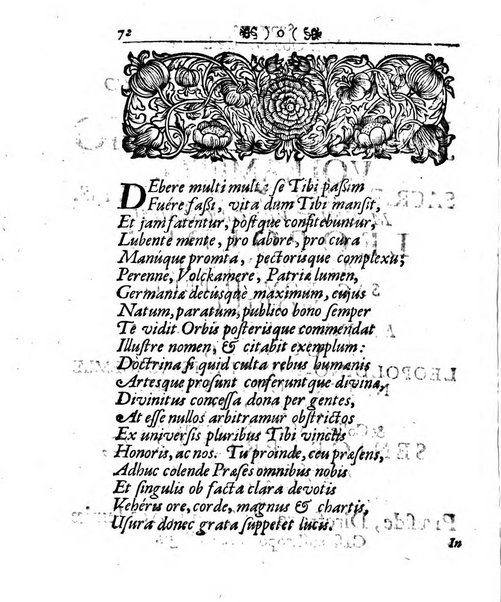 72 )o(
DEbere multi multa se Tibi passim
Fuére fassi, vita dum Tibi mansit,
Et jam fatentur, postque confitebuntur,
Lubente mente, pro labore, pro cura
Manúque promta, pectorisque complexu;
Perenne, Volckamere, Patriæ lumen,
Germaniæ decusque maximum, cujus
Natum, paratum, publico bono semper
Te vidit Orbis posterisque commendat
Illustre nomen, & citabit exemplum:
Doctrina si quid culta rebus humanis
Artesque prosunt conferuntque divina,
Divinitus concessa dona per gentes,
At esse nullos arbitramur obstrictos
Ex universis pluribus Tibi vinclis
Honoris, ac nos. Tu proinde, ceu præsens,
Adhuc colende Præses omnibus nobis
Et singulis ob facta clara devotis
Vehêris ore, corde, magnus & chartis,
Usura donec grata suppetet lucis.
In